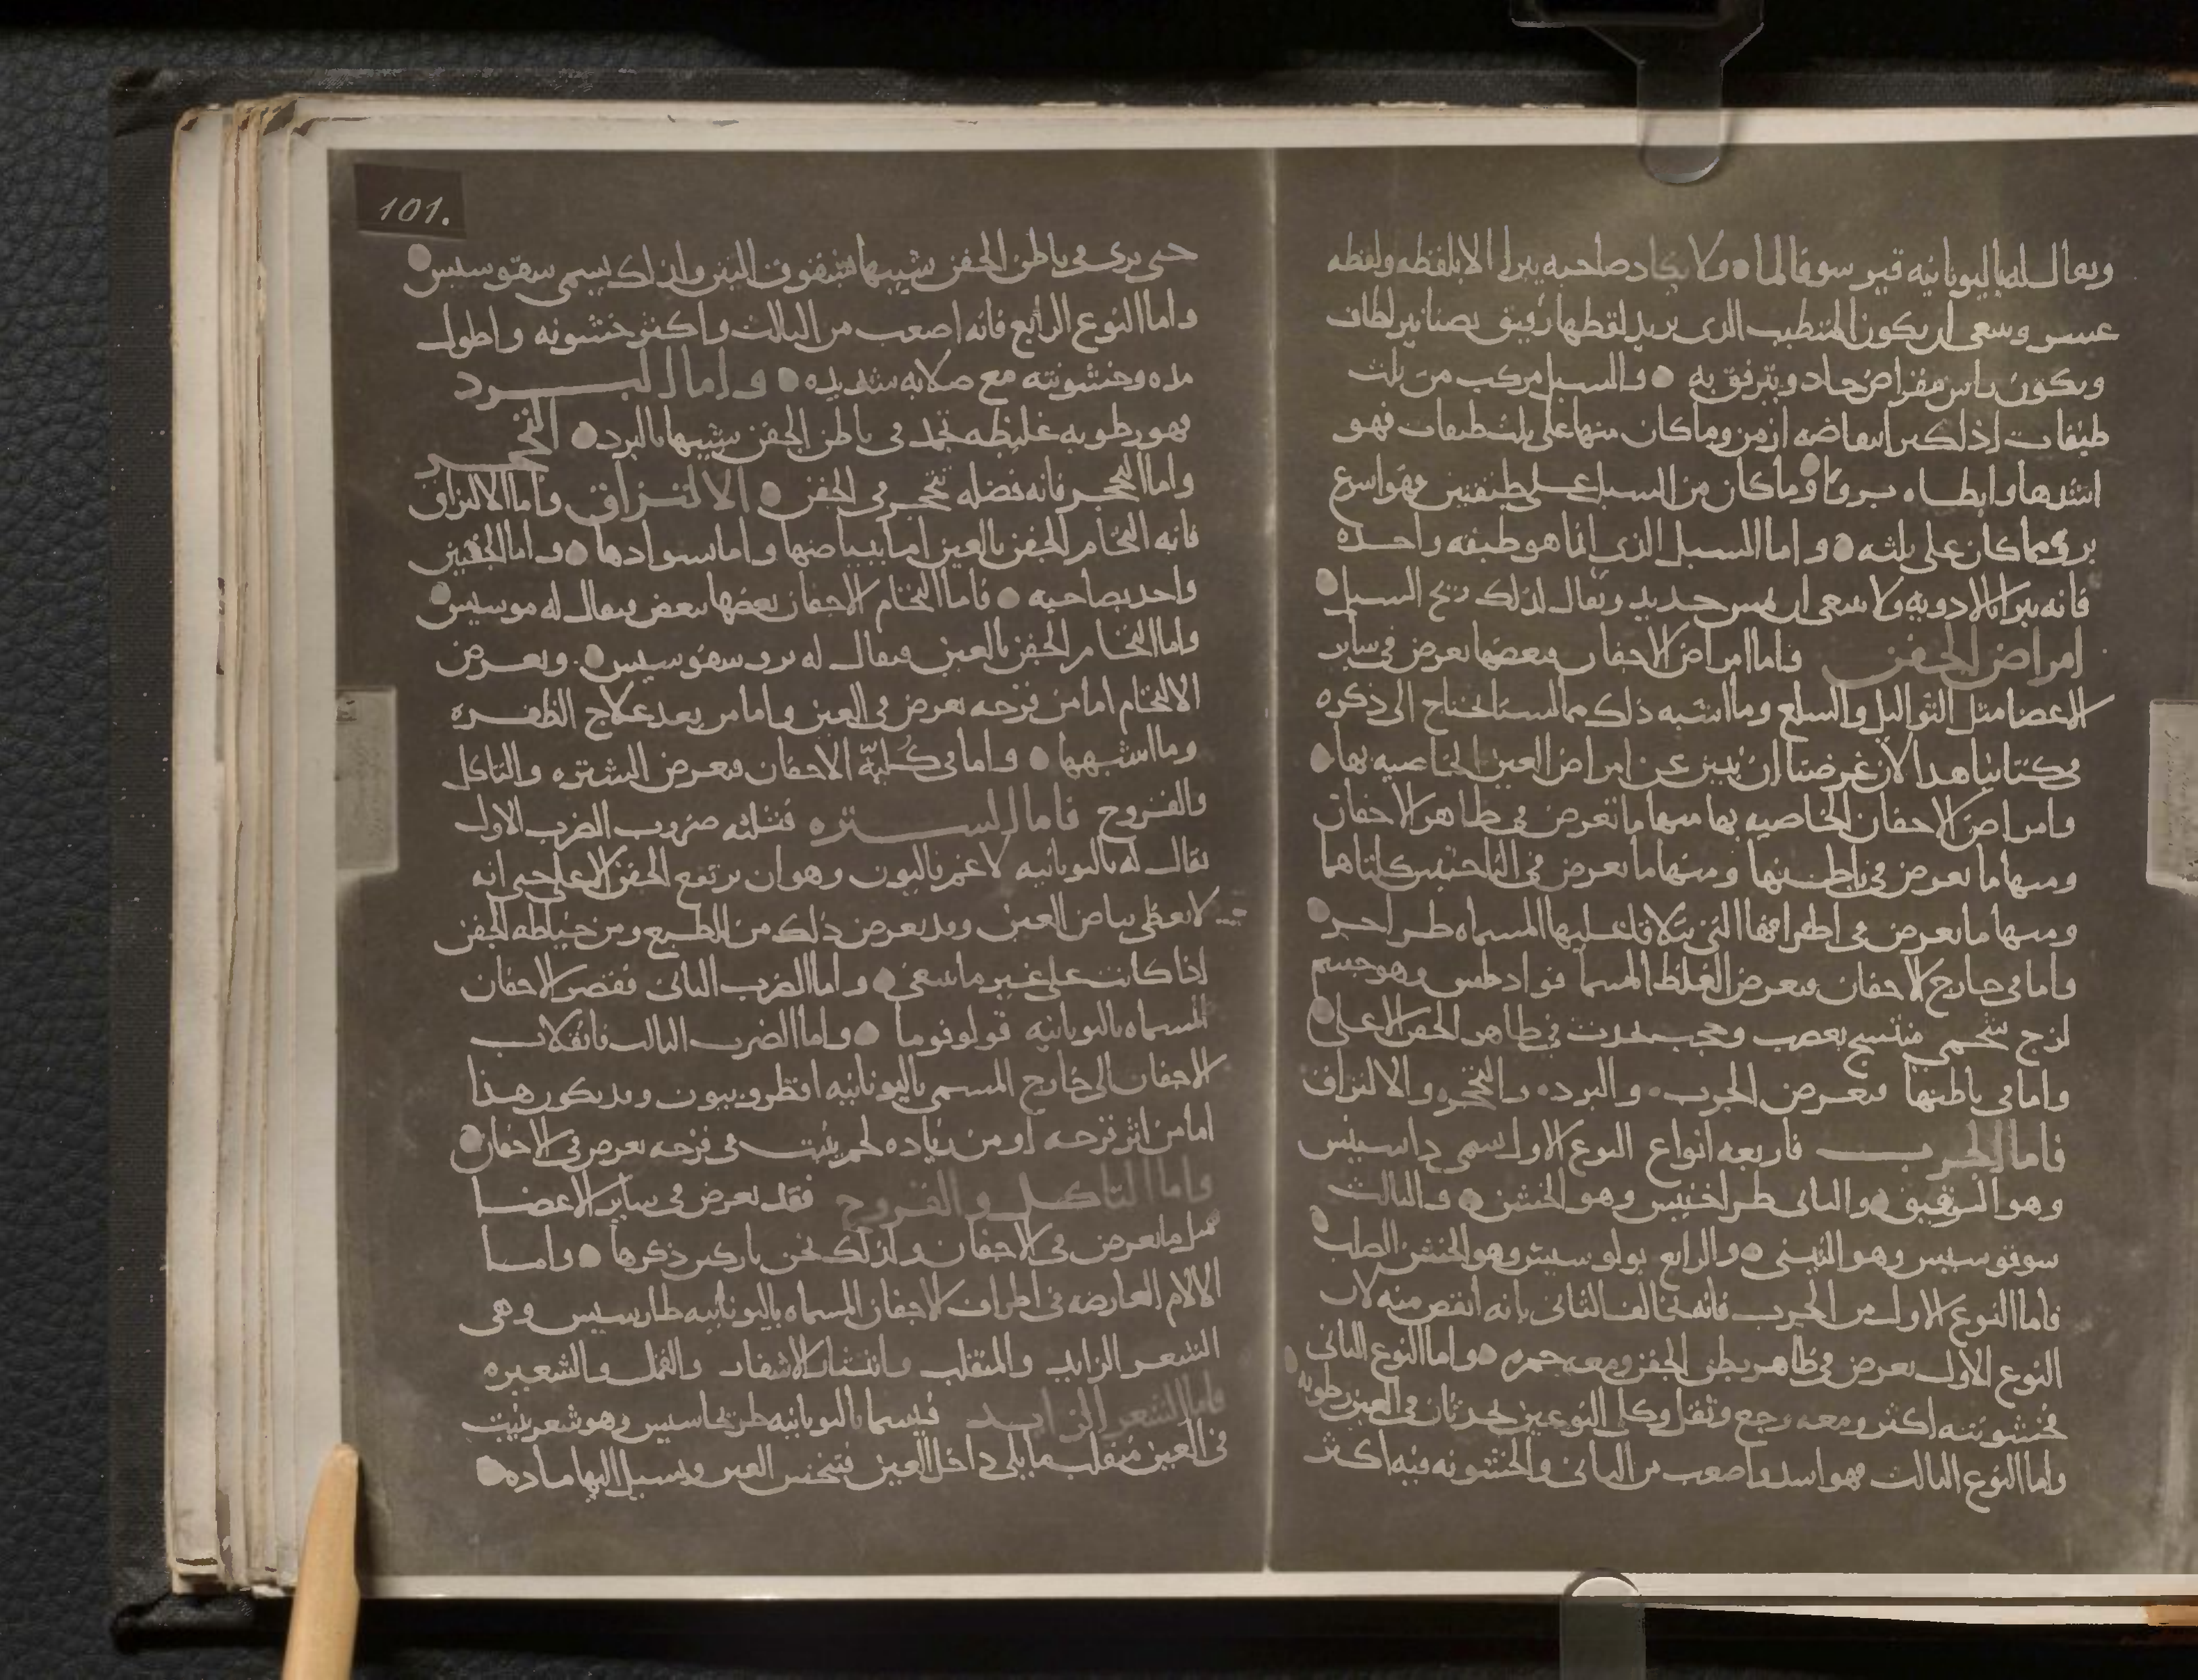 ويقال له باليونانيه قير سوفالما ولا يكاد صاحبه يبرا الا بلقطه ولقطه
عسر وينبغى ان يكون المتطبب الذى يريد لقطها رفيق بصنانير لطاف
ويكون براس مقراض حاد ويترفق به والسبل مركب من ثلث
طبقات اذا كبر انتفاضه ازمن وما كان منها على ثلث طبقات فهو
اشدها وابطاء بروا وما كان من السبل على طبقتين فهو اسرع
برء مما كان على ثلثه واما السبل الذى انما هو طبقه واحده
فانه يبرا بالادويه ولا ينبغى ان يمس حديد ويقال لذلك ريح السبل
امراض الجفن واما امراض الاجفان فبعضها تعرض فى ساير
الاعضا مثل الثواليل والسلع وما اشبه ذلك مما لسنا نحتاج الى ذكره
فى كتابنا هذا لان غرضنا ان نبين عن امراض العين الخاصيه بها
وامراض الاجفان الخاصيه بها منها ما تعرض فى ظاهر الاجفان
ومنها ما تعرض فى باطنها ومنها ما تعرض فى الناحيتين كلتاهما
ومنها ما تعرض فى اطرافها التى
واما فى خارج الاجفان فيعرض الغلظ المسما وهو جسم
لزج شحمى منتسج بعصب وحجب يحدث فى ظاهر الجفن الاعلى
واما فى باطنها فيعرض الجرب والبرد والتحجر والالتزاق
فاما الجرب فاربعه انواع النوع الاول يسمى داسيتس
وهو الرقيق والثانى طراخيتس وهو الخشن والثالث
سوقوسيس وهو التينى والرابع يولوسيس وهو الخشن الصلب
فاما النوع الاول من الجرب فانه يخالف الثانى بانه انقص منه لان
النوع الاول يعرض فى ظاهر بطن الجفن ومعه حمره واما النوع الثانى
فخشونته اكثر ومعه وجع وثقل وكل النوعين يحدثان فى العين رطوبه
واما النوع الثالث فهو اشد واصعب من الثانى والخشونه فيه اكثر
101.
حتى يرى فى باطن الجفن شبيها بشقوق التين ولذلك يسمى سوقوسيس
واما النوع الرابع فانه اصعب من الثالث واكثر خشونه واطول
مده وخشونته مع صلابه شديده واما البرد
فهو رطوبه غليظه تجمد فى باطن الجفن شبيها بالبرد التحجر
واما التحجر فانه فضله تتحجر فى الجفن الالتزاق واما الالتزاق
فانه التحام الجفن بالعين اما ببياضها واما سوادها واما الجفنين
واحد بصاحبه فاما التحام الاجفان بعضها ببعض فيقال له موسيس
واما التحام الجفن بالعين فيقال له بروسفوسيس ويعرض
الالتحام اما من قرحه تعرض فى العين واما من بعد علاج الظفره
وما اشبهها واما فى كليّة الاجفان فيعرض الشتره والتاكل
والقروح فاما الشتره فثلثه ضروب الضرب الاول
يقال له باليونانيه لاغوفثالمون وهو ان يرتفع الجفن الاعلى حتى انه
لا يغطى بياض العين وقد يعرض ذلك من الطبع ومن خياطه الجفن
اذا كانت على غير ما ينبغى واما الضرب الثانى فقصر الاجفان
المسماه باليونانيه قولوفوما واما الضرب الثالث فانقلاب
الاجفان الى خارج المسمى باليونانيه اقطروبيون وقد يكون هذا
اما من اثر قرحه او من زياده لحم ينبت فى قرحه تعرض فى الاجفان
واما التاكل والقروح فقد تعرض فى ساير الاعضا
مثل ما تعرض فى الاجفان ولذلك نحن تاركين ذكرها واما
الالام العارضه فى اطراف الاجفان المسماه باليونانيه طارسيس وهى
الشعر الزايد والمنقلب وانتشار الاشفار والقمل والشعيره
فاما الشعر الزايد فيسما باليونانيه طريخاسيس وهو شعر ينبت
فى العين منقلب مما يلى داخل العين فينخس العين ويسيل اليها ماده